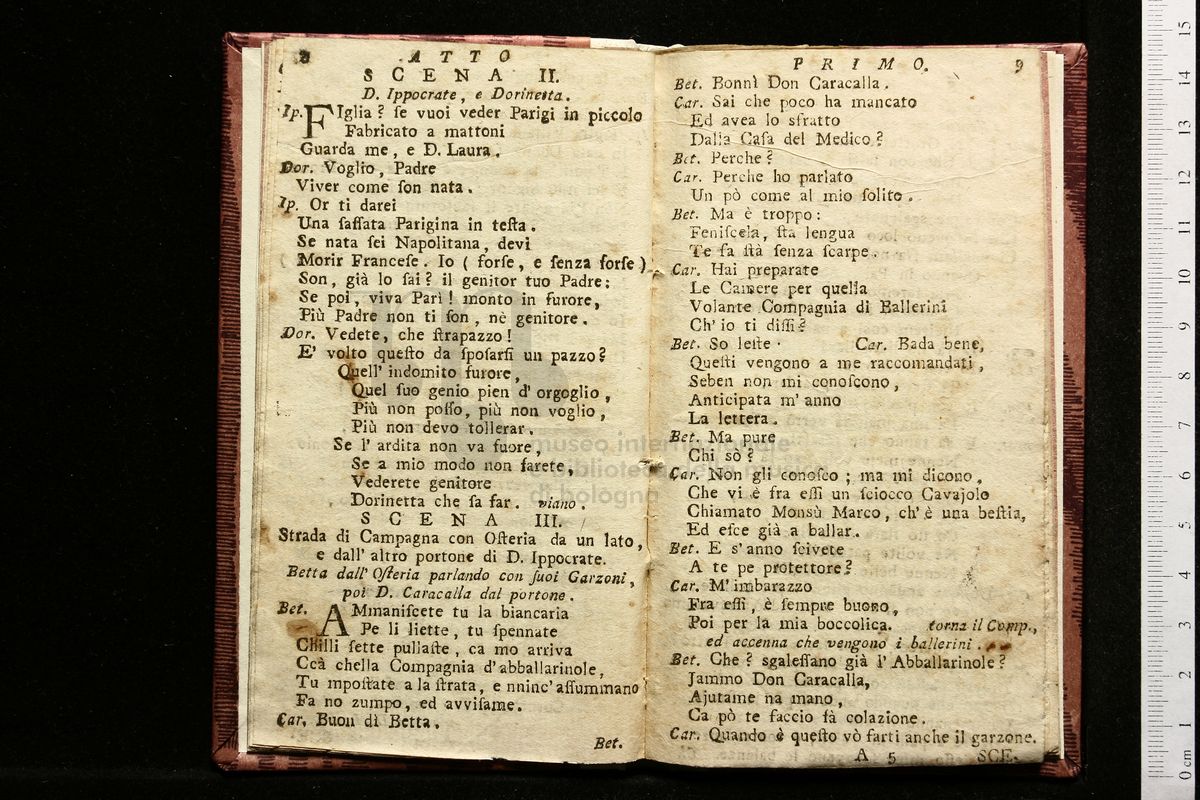 8 ATTO
SCENA II.
D. Ippocrate, e Dorinetta.
Ip. FIglia? ſe vuoi veder Parigi in piccolo
Fabricato a mattoni
Guarda me, e D. Laura.
Dor. Voglio, Padre
Viver come ſon nata.
Ip. Or ti darei
Una ſaſſata Parigina in teſta.
Se nata ſei Napolitana, devi
Morir Franceſe. Io ( forſe, e ſenza forſe )
Son, già lo ſai? il genitor tuo Padre:
Se poi, viva Parì! monto in furore,
Più Padre non ti ſon, nè genitore.
Dor. Vedete, che ſtrapazzo!
E' volto queſto da ſpoſarſi un pazzo?
Quell' indomito furore,
Quel ſuo genio pien d' orgoglio,
Più non poſſo, più non voglio,
Più non devo tollerar.
Se l' ardita non va fuore,
Se a mio modo non farete,
Vederete genitore
Dorinetta che ſa far. viano.
SCENA III.
Strada di Campagna con Oſteria da un lato,
e dall' altro portone di D. Ippocrate.
Betta dall' Oſteria parlando con ſuoi Garzoni,
poi D. Caracalla dal portone.
Bet. AMmaniſcete tu la biancaria
Pe li liette, tu ſpennate
Chilli ſette pullaſte, ca mo arriva
Ccà chella Compagnia d' abballarinole,
Tu mpoſtate a la ſtrata, e nninc' aſſummano
Fa no zumpo, ed avviſame.
Car. Buon dì Betta.
Bet.
PRIMO. 9
Bet. Bonnì Don Caracalla.
Car. Sai che poco ha mancato
Ed avea lo sfratto
Dalla Caſa del Medico?
Bet. Perche?
Car. Perche ho parlato
Un pò come al mio ſolito.
Bet. Ma è troppo:
Feniſcela, ſta lengua
Te fa ſtà ſenza ſcarpe.
Car. Hai preparate
Le Camere per quella
Volante Compagnia di Ballerini
Ch' io ti diſſi?
Bet. So leſte. Car. Bada bene,
Queſti vengono a me raccomandati,
Seben non mi conoſcono,
Anticipata m' anno
La lettera.
Bet. Ma pure
Chi sò?
Car. Non gli conoſco; ma mi dicono,
Che vi è fra eſſi un ſciocco Cavajolo
Chiamato Monsù Marco, ch' è una beſtia,
Ed eſce già a ballar.
Bet. E s' anno ſcivete
A te pe protettore?
Car. M' imbarazzo
Fra eſſi, è ſempre buono,
Poi per la mia boccolica. torna il Comp.,
ed accenna che vengono i ballerini.
Bet. Che? sgaleſſano già l' Abballarinole?
Jammo Don Caracalla,
Ajutame na mano,
Ca pò te faccio fà colazione.
Car. Quando è queſto vò farti anche il garzone.
A 5 SCE.
museo internazionale
biblioteca della musica
di bologna
0 cm 1 2 3 4 5 6 7 8 9 10 11 12 13 14 15